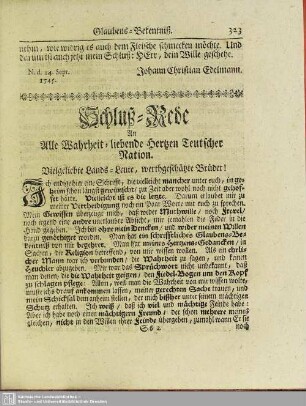 Glaubens-Bekentniß. 323
nehin, wie widrig es auch dem Fleische schmecken möchte. Und
der und ist auch jetzt mein Schluß: HErr, dein Wille geschehe.
N. d. 14. Sept.
1745.
Johann Christian Edelmann.
Schluß-Rede
An
Alle Wahrheit-liebende Hertzen Teutscher
Nation.
Vielgeliebte Lands-Leute, werthgeschätzte Brüder!
Ich endige hier eine Schrifft, die vielleicht mancher unter euch, in geheim
schon längst gewünscht; zur Zeit aber wohl noch nicht gehoffet
hätte. Vielleicht ist es die letzte. Darum erlaubet mir
zu meiner Vertheidigung noch ein Paar Wort, mit euch zu reden.
Mein Gewissen überzeugt mich, daß weder Muthwille, noch Frevel,
noch irgend eine andere Absicht, mir jemahlen die Feder in die
Hand gegeben. Ich bin ohne mein Dencken, und wider meinen Willen
darzu genöthiget worden. Man hat ein Glaubens-Bekentniß
von mir begehret. Man hat meines Hertzens-Gedancken, in
Sachen, die Religion betreffend, von mir wissen wollen. Als ein ehrlicher
Mann war ich verbunden, die Wahrheit zu sagen, und keinen
Heuchler abzugeben. Mir war das Sprichwort nicht unbekant, daß
man denen, die die Wahrheit geigen, den Fidel-Bogen um den Kopf
zu schlagen pflege. Allein, weil man die Wahrheit von mir wissen wolte,
muste ichs darauf ankommen lassen, meiner gerechten Sache trauen, und
mein Schicksal dem anheim stellen, der mich bißher unter seinem mächtigen
Schutz erhalten. Ich weiß, daß ich viel und mächtige Feinde habe:
Aber ich habe noch einen mächtigern Freund, der schon mehrere mahl
gleichen, nicht in den Willen ihrer Feinde übergeben, zumahl wann Er sie
Ss 2 noch